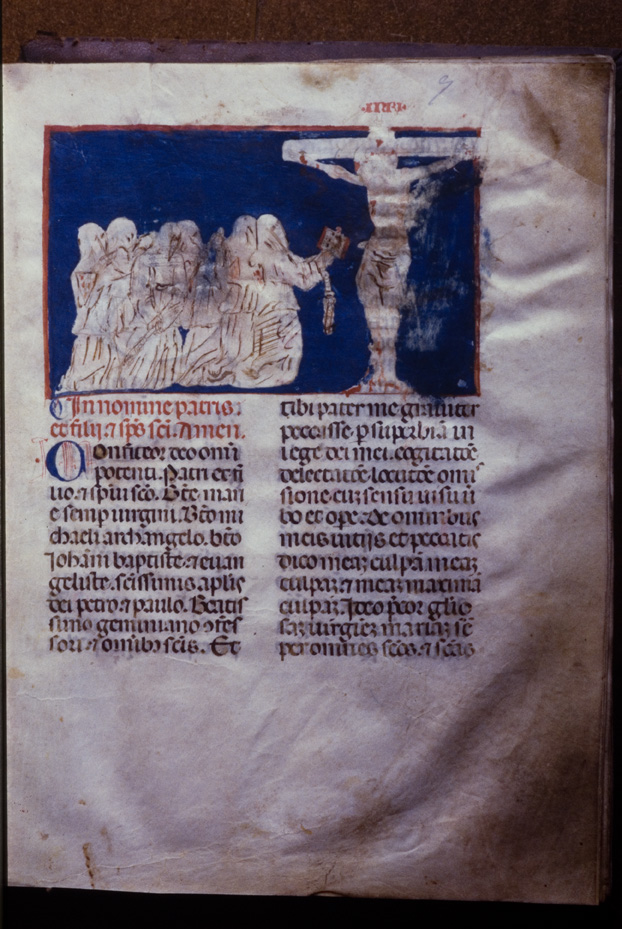 INRI
In nomine patris.
et filij ⁊ sp̄s sc̄i. Amen.
Confiteor deo om̄i
potenti. Patri et fi
lio. ⁊ sp̄ui sc̄o. B̄te mari
e semp uirgini. B̄to mi
chaeli archangelo. b̄to
Ioham̄i baptiste. ⁊ euan
geliste. sc̄issimis aplis
dei petro. ⁊ paulo. Beatis
simo geminiano ꝯfes
sori. ⁊ om̄ib; sc̄is. Et
tibi pater me grauiter
peccasse. p̱ superbiā in
lege dei mei. cogitatōe
delectatōe. locutōe omi
sione. cū sensu uisu ū
bo et ope. De omnibus
meis uitijs et peccatis
dico meaꝫ culpā meaꝫ
culpaꝫ ⁊ meaꝫ maximā
culpaꝫ. Ideo p̄cor glio
saꝫ uirgieꝫ mariaꝫ se
per omnes sc̄os. ⁊ sc̄as